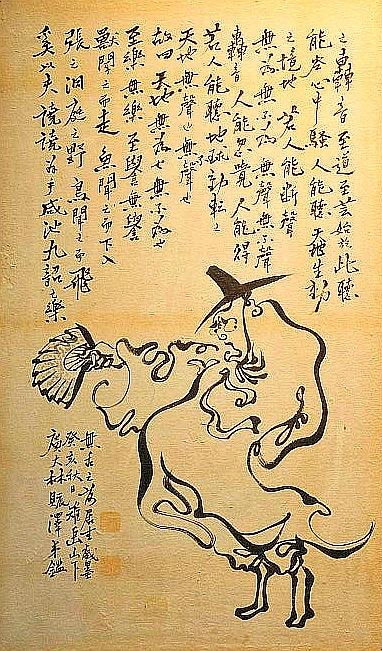 奚以夫譊譊為乎咸池九韶之樂
張之洞庭之野 鳥聞之而飛
獸聞之而走 魚聞之而下入
至樂無樂 至譽無譽
故曰 天地無為也無不為也
天地無聲也無聲也
若人能聽地球動轉之
轟音人能不覺 人能得
無為無不為 無聲無不聲
之境地 若人能斷聲
能 心中騷 人能聽天地生動
之轟音 至道至芸始於此聽
廣大林賑澤 鑑
癸亥秋日雄岳山下
無 之為居士戲墨